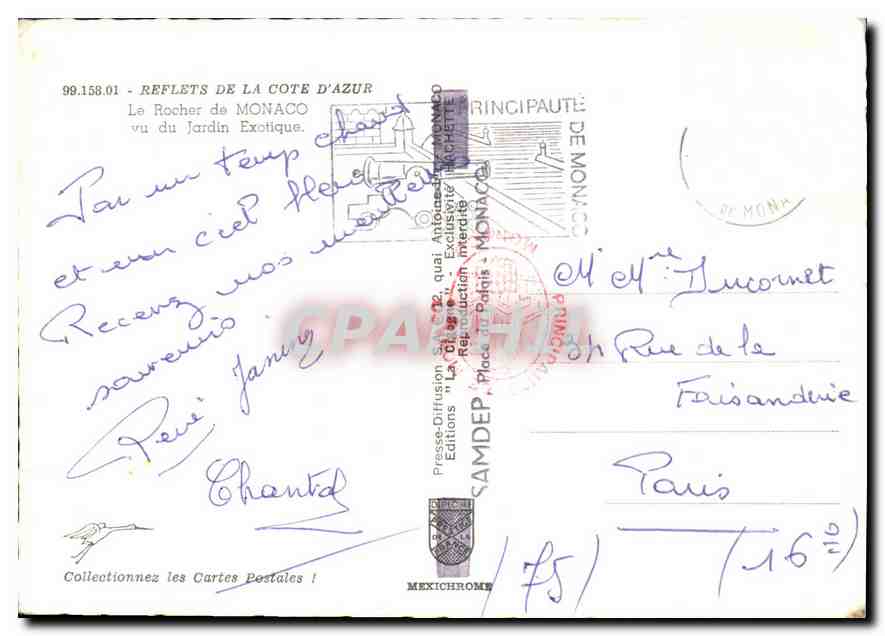 99.158.01 - REFLETS DE LA COTE D'AZUR
Le Rocher de MONACO
vu du Jardin Exotique.
Par un temp chaud
et un ciel bleu
Recevez nos meilleurs
souvenirs
René Janine
Chantal
Collectionnez les Cartes Postales !
PRINCIPAUTÉ
DE MONACO
DE MONA
Presse-Diffusion S.A. 12, quai Antoine MONACO
Editions "La Cigogne" - Exclusivité HACHETTE
Reproduction interdite
SAMDEP Place du Palais - MONACO
PRINCIPAUTE
MONACO
CPARAMA
DE LA
FRANCE
MEXICHROME
Mr Mme Ducornet
34 Rue de la
Faisanderie
Paris
(75) (16e)